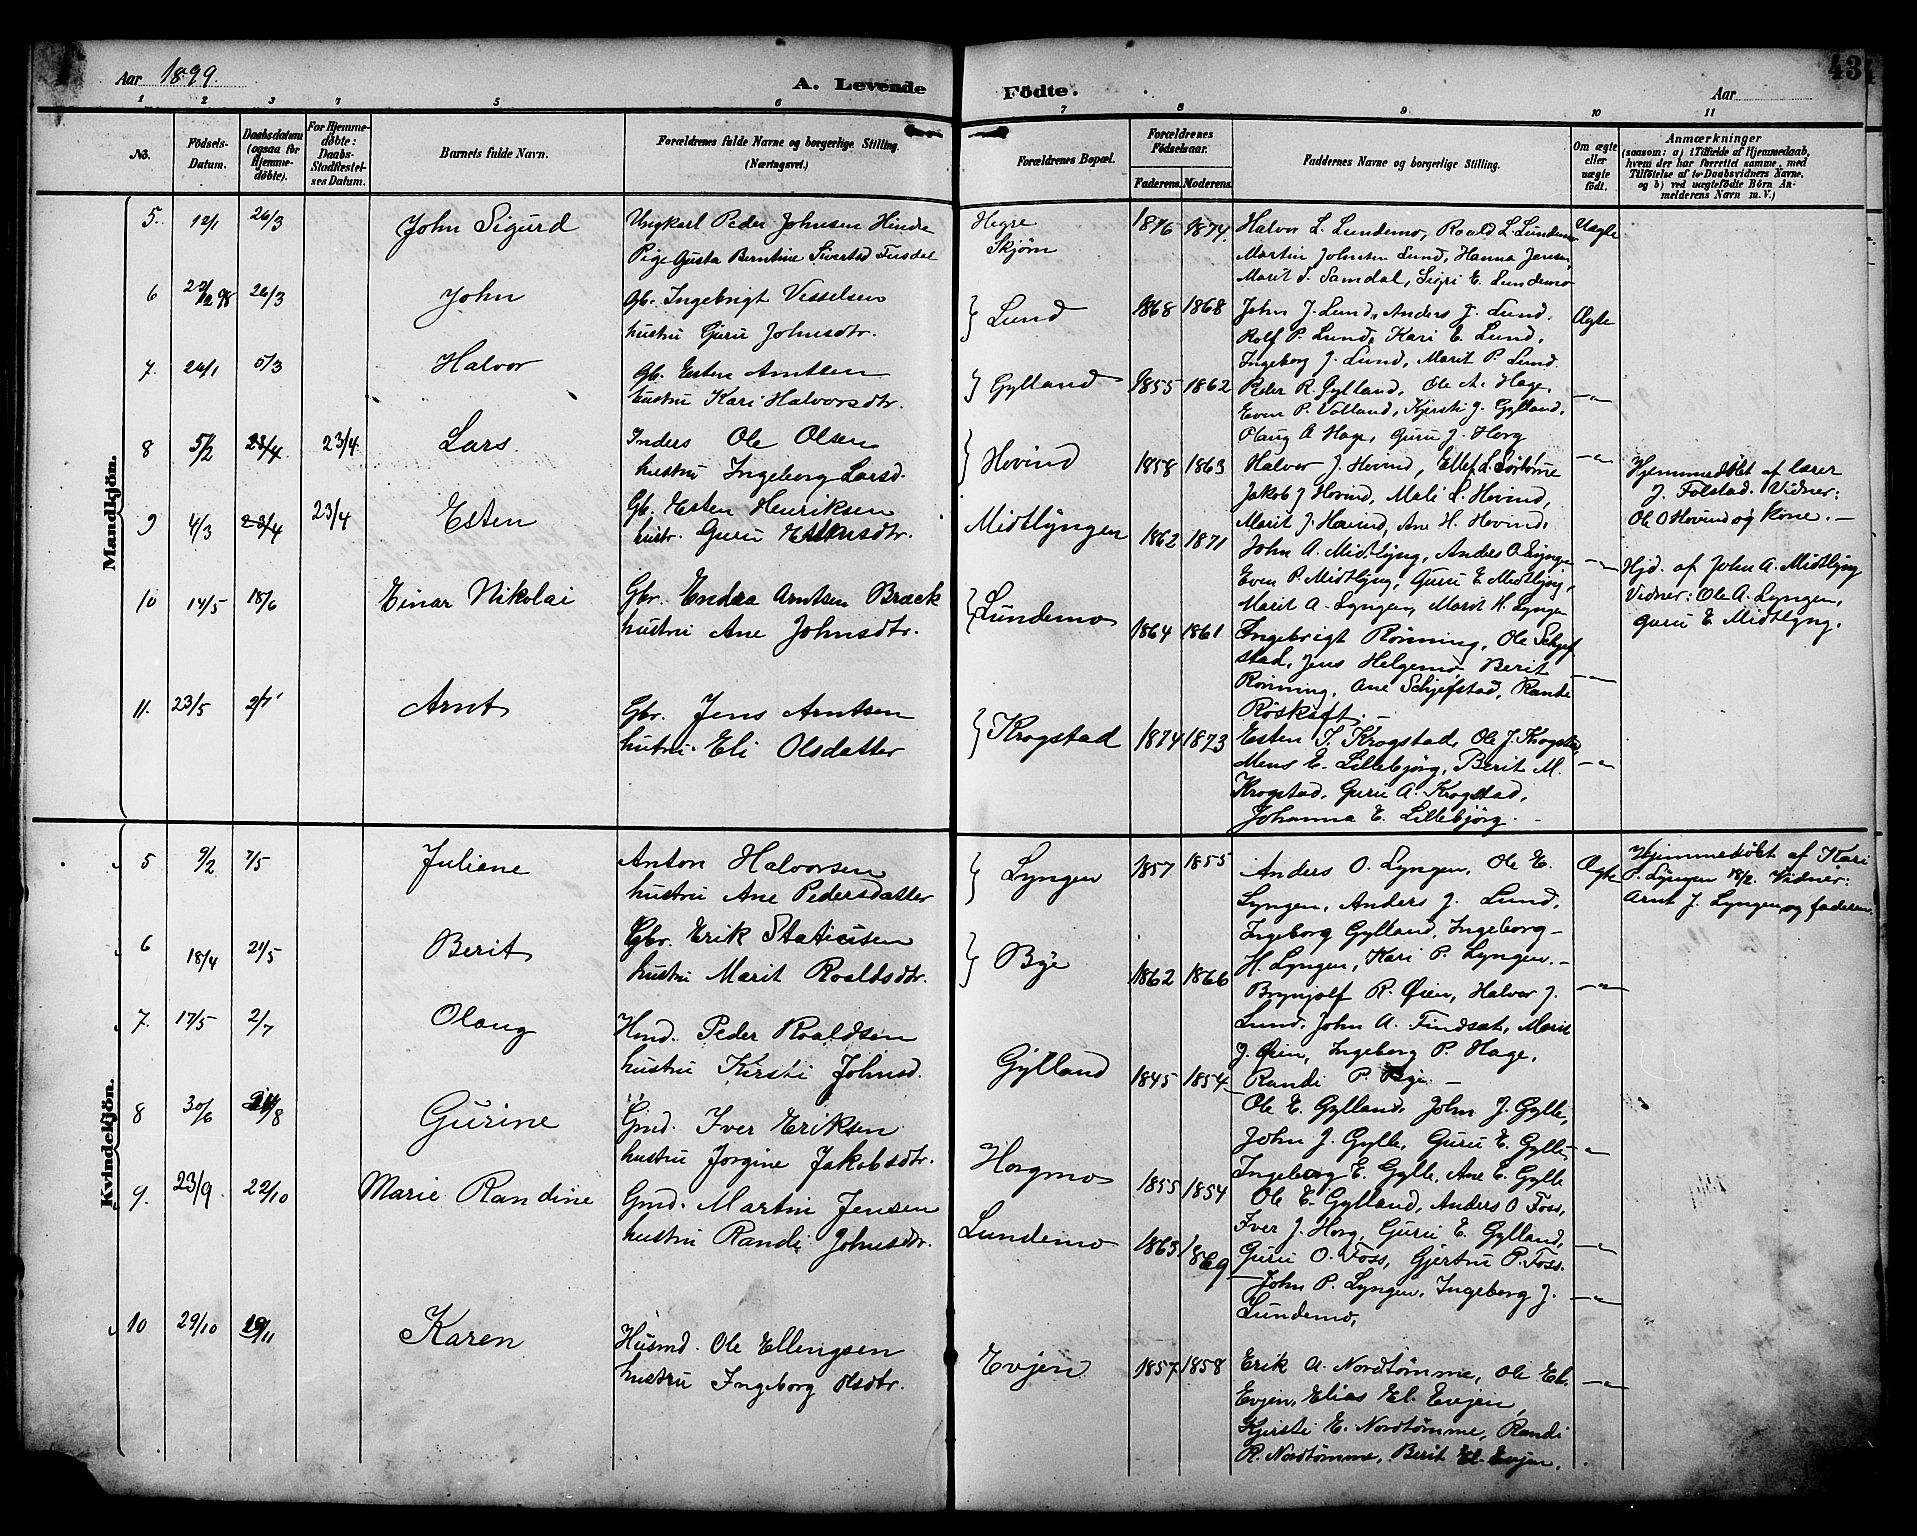 Aar 1899.
A. Levende Födte.
Aar
43
1 2 3 7 5 6 7 8 9 10 11
No.
Födsels-Datum.
Daabsdatum (ogsaa for Hjemmedöbte).
For Hjemmedöbte: Daabs-Stadfæstelses Datum.
Barnets fulde Navn.
Forældrenes fulde Navne og borgerlige Stilling. (Næringsvei.)
Forældrenes Bopæl.
Forældrenes Födselsaar.
Faderens. Moderens.
Faddernes Navne og borgerlige Stilling.
Om ægte eller uægte födt.
Anmærkninger
(saasom: a) i Tilfælde af Hjemmedaab, hvem der har forrettet samme, med Tilföielse af to Daabsvidners Navne, og b) ved uægtefödte Börn Anmelderens Navn m. V.)
Mandkjön.
5. 12/1 26/3 John Sigurd
Ungkarl Peder Johnsen Hinde
Pige Gusta Berntine Sivertsd
Hegre
Skjøm
1876 1874.
Halvor L. Lundemo, Roald L. Lundemo
Martin Johnsen Lund, Hanna Jensen,
Marit S. Samdal, Sigri E. Lundemo
Uægte
6 26/3 John
Gb. Ingebrigt Visselsen
hustru Guru Johnsdtr.
Lund
1868 1868
John J. Lund, Anders J. Lund,
Rolf P. Lund, Kari E. Lund,
Ingeborg J. Lund, Marit P. Lund.
Ægte
7. 24/1 5/3 Halvor
Gb. Esten Arntsen
hustru Kari Halvorsdtr.
Gylland
1855 1862
Peder R. Gylland, Ole A. Hage,
Even P. Volland, Kjersti J. Gylland,
Olaug A Hage, Guru J. Horg
-"-
8 5/2 23/4 23/4 Lars.
Inders Ole Olsen
hustru Ingeborg Larsd.
Hovind
1858 1863
Halvor J. Hovind, Ellef L. Sørtømme
Jakob J Hovind, Mali L. Hovind,
Marit J. Hovind, Ane H. Hovind.
-"-
Hjemmedøbt af lærer
J. Folstad. Vidner:
Ole O Hovind og kone. -
9 4/3 23/4 23/4 Esten
Gb. Esten Henriksen
hustr. Guru Estensdtr.
Midtlyngen
1862 1871
John A. Midtlyng, Anders O Lynge
Even P. Midtlyng, Guru E. Midtlyng,
Marit A. Lyngen, Marit H. Lyngen
-"-
Hjd. af John A. Midtlyng
Vidner: Ole A. Lyngen,
Guru E Midtlyng.
10 14/5 18/6 Einar Nikolai
Gbr. Endra Arntsen Bræck
hustru Ane Johnsdtr.
Lundemo
1864 1861
Ingebrigt Rønning, Ole Schjef
stad, Jens Helgemo, Berit
Rønning, Ane Schjefstad, Randi
Røskaft. -
-"-
11. 23/5 2/7 Arnt
Gbr. Jens Arntsen
hutru Eli Olsdatter
Krogstad
1874 1873
Esten I. Krogstad, Ole J. Krogstad,
Mens E. Lillebjørg, Berit M.
Krogstad, Guru A. Krogstad,
Johanna E. Lillebjörg. -
-"-
Kvindekjön.
5 9/2 7/5 Juliene
Anton Halvorsen
hustru Ane Pedersdatter
Lyngen
1857 1855
Anders O. Lyngen, Ole E.
Lyngen, Anders J. Lund,
Ingeborg Gylland, Ingeborg
H. Lyngen, Kari P. Lyngen. -
Ægte
Hjemmedøbt af Kari
P. Lyngen 18/2. Vidner:
Arnt J. Lyngen og faderen.
6 18/4 21/5 Berit
Gbr. Erik Staticusen
hustru Marit Roaldsdtr.
Bye
1862 1866
Brynjolf R. Øien, Halvor J.
Lund, John A. Findsæt, Marit
J. Øien, Ingeborg P. Hage,
Randi P. Bye. -
-"-
7. 17/5 2/7 Olaug
Hmd. Peder Roaldsen
hustru Kirsti Johnsd.
Gylland
1845 1854
Ole E. Gylland, John J. Gylle,
John J. Gylle, Guru E. Gylle,
Ingeborg E. Gylle, Ane E. Gylle
-"-
8 30/6 Gurine
Gmd. Iver Eriksen
hustru Jorgine Jakobsdtr.
Horgmo
1855 1854
Ole E. Gylland, Anders O Foss,
Iver J. Horg, Guru E. Gylland,
Guru O. Foss, Gjertru P. Foss.
-"-
9. 23/9 22/10 Marie Randine
Gmd. Martin Jensen
hustru Randi Johnsdtr.
Lundemo
1863 1869
John P. Lyngen, Ingeborg J.
Lundemo,
-"-
10 29/10 Karen
Husmd. Ole Ellingsen
hustru Ingeborg Olsdtr.
Evjen
1857 1858
Erik A. Nordtømme, Ole El.
Evjen, Elias El. Evjen,
Kjersti E. Nordtømme, Randi
R. Nordtømme, Berit El. Evjen.
-"-